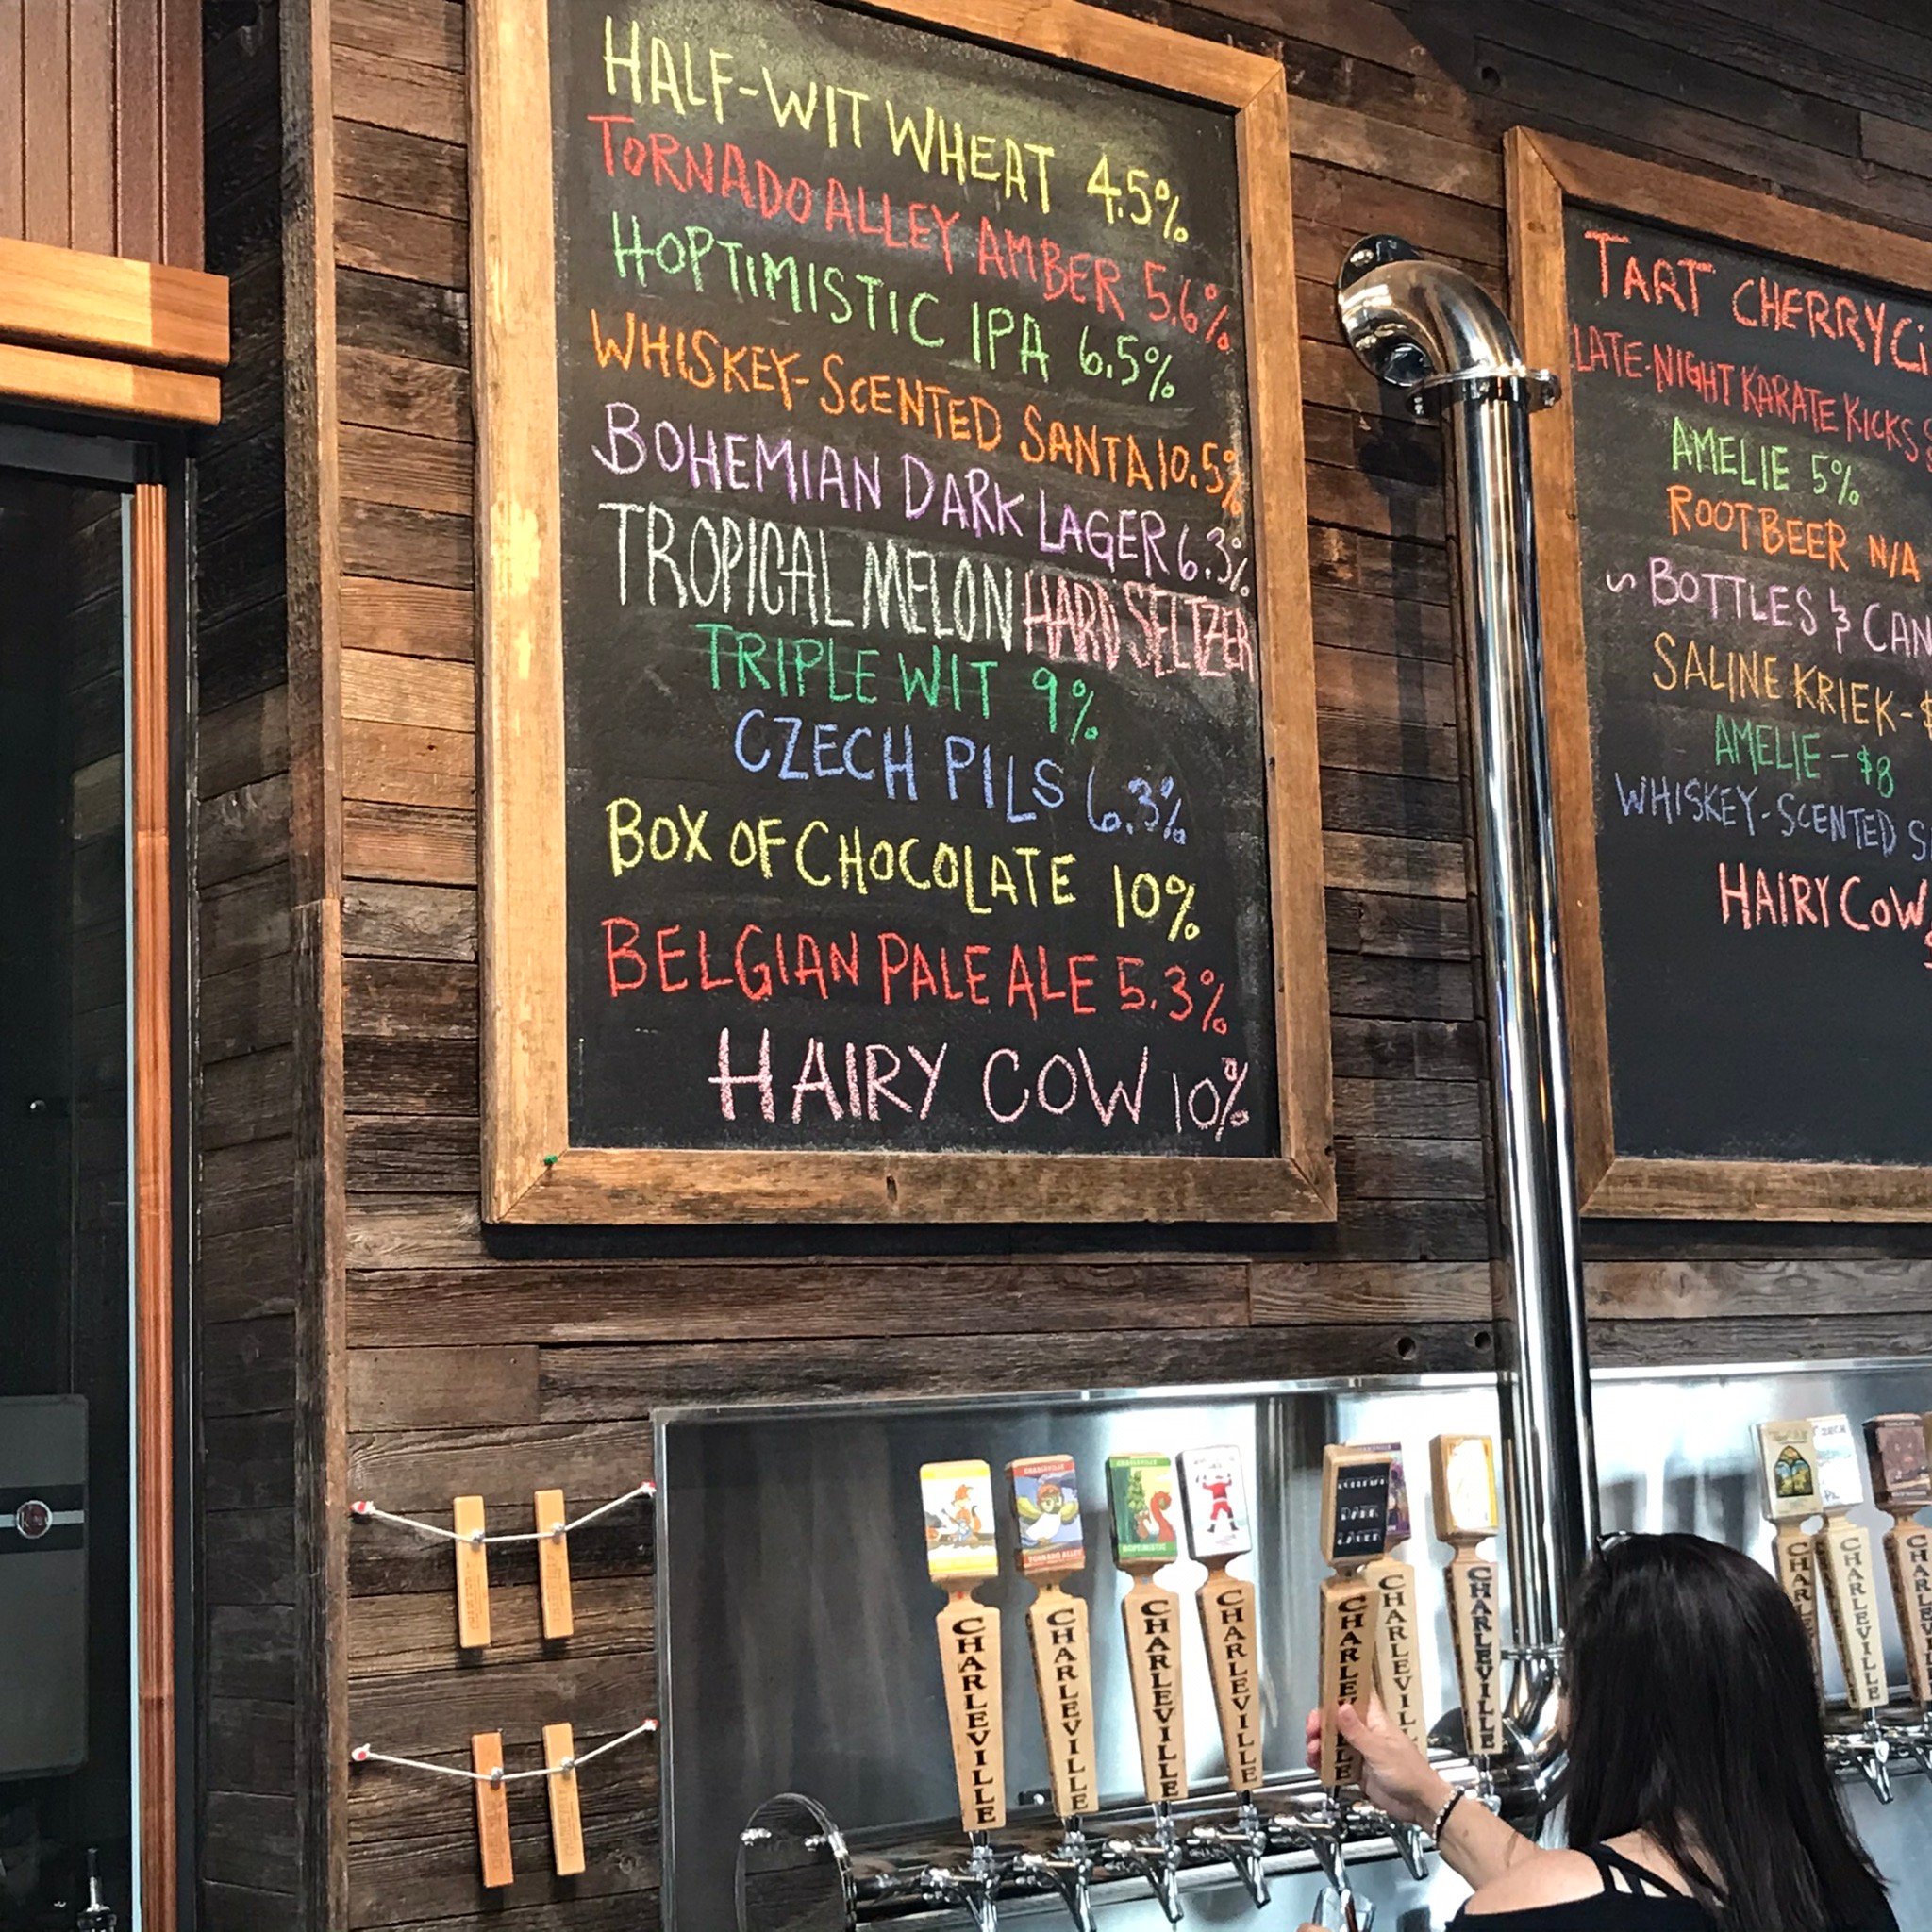 HALF-WIT WHEAT 4.5%
TORNADO ALLEY AMBER 5.6%
HOPTIMISTIC IPA 6.5%
WHISKEY-SCENTED SANTA 10.5%
BOHEMIAN DARK LAGER 6.3%
TROPICAL MELON HARD SELTZER
TRIPLE WIT 9%
CZECH PILS 6.3%
BOX OF CHOCOLATE 10%
BELGIAN PALE ALE 5.3%
HAIRY COW 10%
TART CHERRY CI
LATE-NIGHT KARATE KICKS
AMELIE 5%
ROOT BEER N/A
~ BOTTLES & CAN
SALINE KRIEK - $
AMELIE - $8
WHISKEY-SCENTED S
HAIRY COW
CHARLEVILLE
TORNADO ALLEY
CHARLEVILLE
CHARLEVILLE
HOPTIMISTIC
CHARLEVILLE
CHARLEVILLE
DARK
LAGER
CHARLEVILLE
CHARLEVILLE
CHARLEVILLE
CHARLEVILLE
CHARLEVILLE